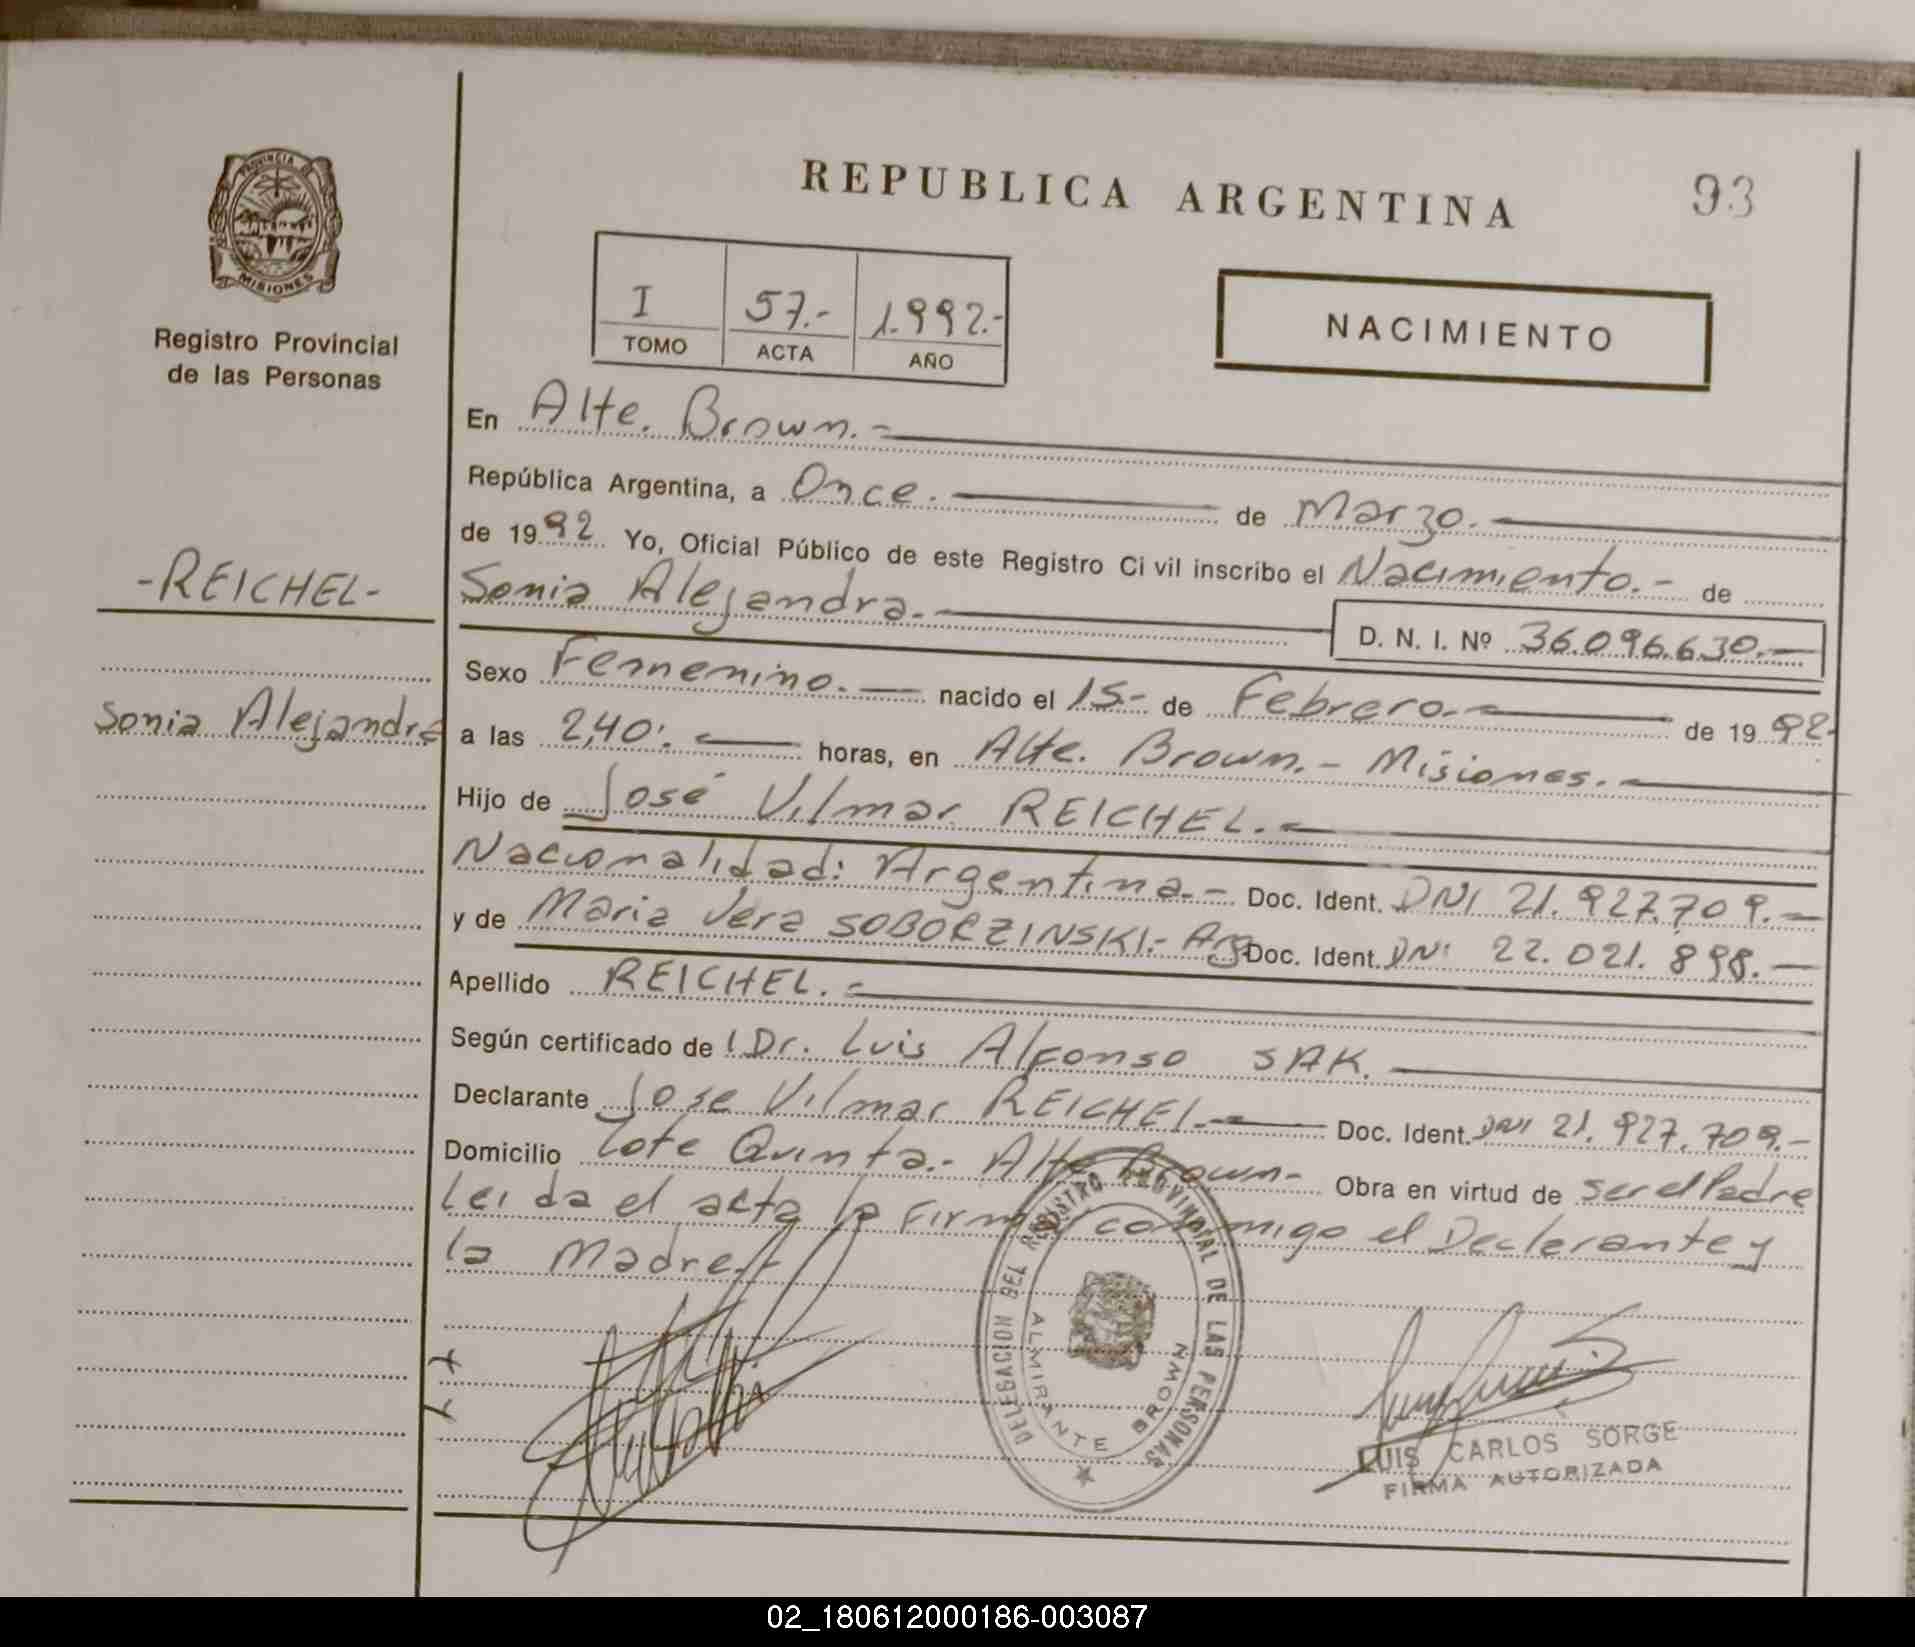 REPUBLICA ARGENTINA
93
PROVINCIA DE
MISIONES
Registro Provincial
de las Personas
I 57.- 1.992.-
TOMO ACTA AÑO
NACIMIENTO
En Alte. Brown.-
República Argentina, a Once. de Marzo.
de 1992 Yo, Oficial Público de este Registro Civil inscribo el Nacimiento.- de
-REICHEL-
Sonia Alejandra.-
D. N. I. Nº 36.096.630.-
Sexo Femenino.- nacido el 15- de Febrero.- de 1992-
Sonia Alejandra
a las 2,40'. horas, en Alte. Brown.- Misiones.-
Hijo de José Vilmar REICHEL.-
Nacionalidad: Argentina.- Doc. Ident. DNI 21.927.709.-
y de Maria Vera SOBORZINSKI.- Arg Doc. Ident. DNI 22.021.898.-
Apellido REICHEL.-
Según certificado de l Dr. Luis Alfonso SAK.
Declarante Jose Vilmar REICHEL.- Doc. Ident. DNI 21.927.709.-
Domicilio Lote Quinta.- Alte Brown- Obra en virtud de ser el Padre
Leida el acta la Firman conmigo el Declarante y
la Madre.-
DELEGACION DEL REGISTRO PROVINCIAL DE LAS PERSONAS
ALMIRANTE BROWN
LUIS CARLOS SORGE
FIRMA AUTORIZADA
02_180612000186-003087